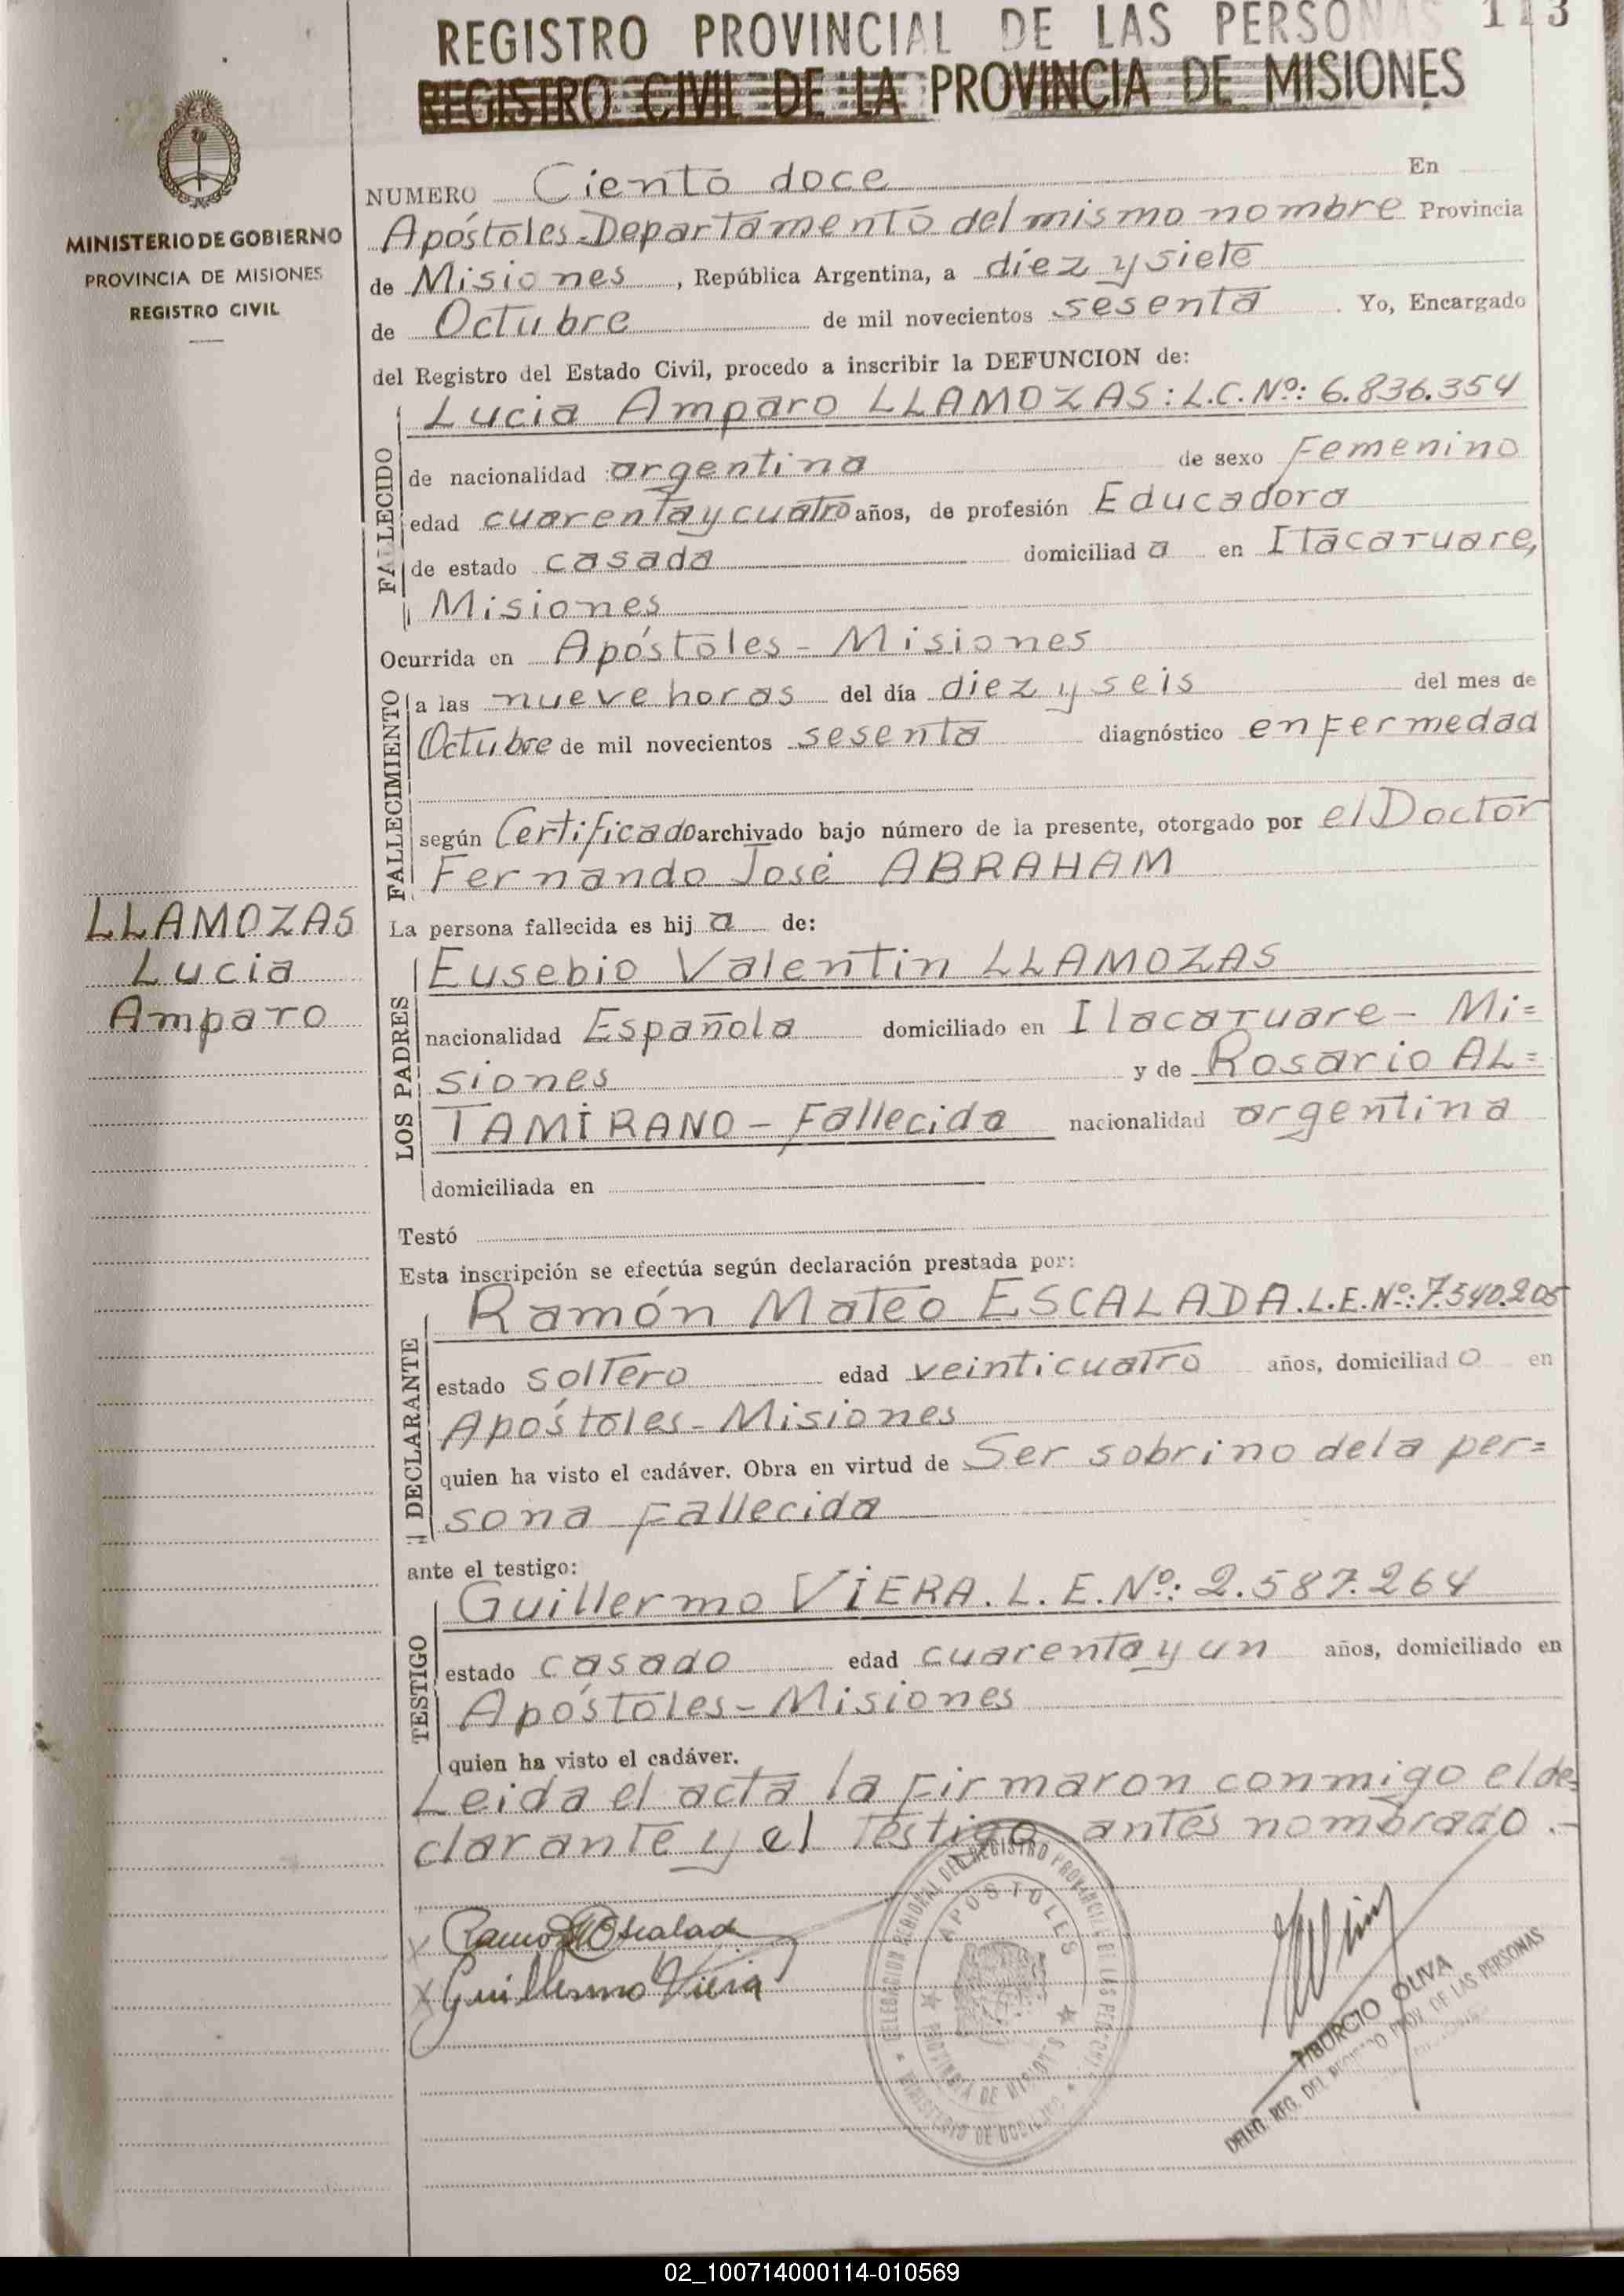 REGISTRO PROVINCIAL DE LAS PERSONAS 113
REGISTRO CIVIL DE LA PROVINCIA DE MISIONES
MINISTERIO DE GOBIERNO
PROVINCIA DE MISIONES
REGISTRO CIVIL
NUMERO Ciento doce En
Apóstoles-Departamento del mismo nombre Provincia
de Misiones, República Argentina, a diez y siete
de Octubre de mil novecientos sesenta. Yo, Encargado
del Registro del Estado Civil, procedo a inscribir la DEFUNCION de:
FALLECIDO
Lucia Amparo LLAMOZAS: L.C.Nº: 6.836.354
de nacionalidad argentina de sexo Femenino
edad cuarenta y cuatro años, de profesión Educadora
de estado casada domiciliad a en Itacaruare,
Misiones
Ocurrida en Apóstoles - Misiones
FALLECIMIENTO
a las nueve horas del día diez y seis del mes de
Octubre de mil novecientos sesenta diagnóstico enfermedad
según Certificado archivado bajo número de la presente, otorgado por el Doctor
Fernando José ABRAHAM
LLAMOZAS
Lucia
Amparo
La persona fallecida es hij a de:
LOS PADRES
Eusebio Valentin LLAMOZAS
nacionalidad Española domiciliado en Itacaruare - Mi=
siones y de Rosario AL=
TAMIRANO - Fallecida nacionalidad argentina
domiciliada en
Testó
Esta inscripción se efectúa según declaración prestada por:
DECLARANTE
Ramón Mateo ESCALADA.L.E.Nº:7.540.205
estado soltero edad veinticuatro años, domiciliad o en
Apóstoles - Misiones
quien ha visto el cadáver. Obra en virtud de Ser sobrino de la per=
sona Fallecida
ante el testigo:
TESTIGO
Guillermo VIERA. L. E. Nº: 2.587.264
estado casado edad cuarenta y un años, domiciliado en
Apóstoles - Misiones
quien ha visto el cadáver.
Leida el acta la firmaron conmigo el de=
clarante y el testigo antes nombrado.-
Guillermo Viera
DELEGACION REGIONAL DEL REGISTRO PROVINCIAL DE LAS PERSONAS
APOSTOLES
PROVINCIA DE MISIONES
MINISTERIO DE GOBIERNO
TIBURCIO OLIVA
DELEG. REG. DEL REGISTRO PROV. DE LAS PERSONAS
02_100714000114-010569